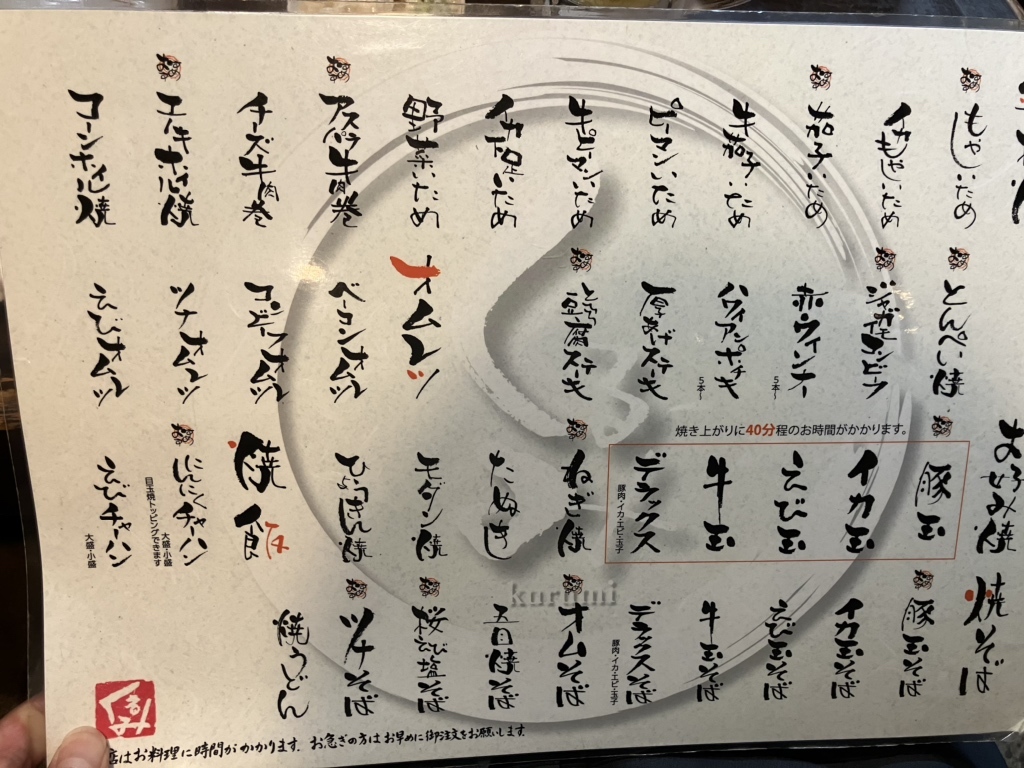 もやしいため
イカもやしいため
茄子いため
牛茄子いため
ピーマンいため
牛ピーマンいため
イカ下足いため
野菜いため
アスパラ牛肉巻
チーズ牛肉巻
エノキホイル焼
コーンホイル焼
とんぺい焼
ジャガ芋コンビーフ
赤ウィンナー
5本〜
ハワイアンポチキ
5本〜
厚あげステーキ
とろろ豆腐ステーキ
オムレツ
ベーコンオムレツ
コンビーフオムレツ
ツナオムレツ
えびオムレツ
お好み焼
焼き上がりに40分程のお時間がかかります。
豚玉
イカ玉
えび玉
牛玉
デラックス
豚肉・イカ・エビ・玉子
ねぎ焼
たぬき
モダン焼
ひろうきん焼
焼食
にんにくチャーハン
大盛・小盛
目玉焼トッピングできます
えびチャーハン
大盛・小盛
焼そば
豚玉そば
イカ玉そば
えび玉そば
牛玉そば
デラックスそば
豚肉・イカ・エビ・玉子
オムそば
五目焼そば
桜えび塩そば
ツナそば
焼うどん
kurumi
くるみ
店はお料理に時間がかかります。お急ぎの方はお早めに御注文をお願いします。